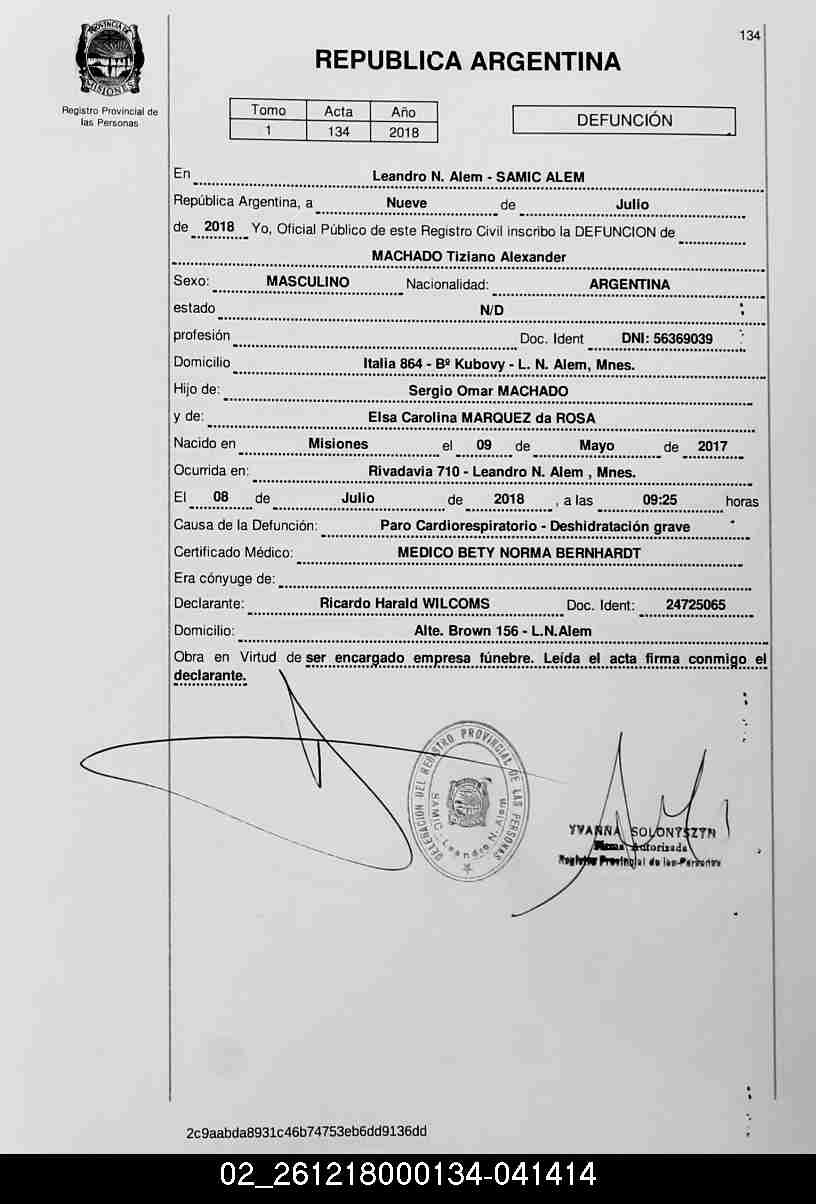 134
PROVINCIA DE
MISIONES
Registro Provincial de
las Personas
REPUBLICA ARGENTINA
Tomo Acta Año
1 134 2018
DEFUNCIÓN
En Leandro N. Alem - SAMIC ALEM
República Argentina, a Nueve de Julio
de 2018 Yo, Oficial Público de este Registro Civil inscribo la DEFUNCION de
MACHADO Tiziano Alexander
Sexo: MASCULINO Nacionalidad: ARGENTINA
estado N/D
profesión Doc. Ident DNI: 56369039
Domicilio Italia 864 - Bº Kubovy - L. N. Alem, Mnes.
Hijo de: Sergio Omar MACHADO
y de: Elsa Carolina MARQUEZ da ROSA
Nacido en Misiones el 09 de Mayo de 2017
Ocurrida en: Rivadavia 710 - Leandro N. Alem , Mnes.
El 08 de Julio de 2018 , a las 09:25 horas
Causa de la Defunción: Paro Cardiorespiratorio - Deshidratación grave
Certificado Médico: MEDICO BETY NORMA BERNHARDT
Era cónyuge de:
Declarante: Ricardo Harald WILCOMS Doc. Ident: 24725065
Domicilio: Alte. Brown 156 - L.N.Alem
Obra en Virtud de ser encargado empresa fúnebre. Leída el acta firma conmigo el
declarante.
DELEGACION DEL REGISTRO PROVINCIAL DE LAS PERSONAS
SAMIC - Leandro N. Alem
YVANNA SOLONYSZYN
Firma Autorizada
Registro Provincial de las Personas
2c9aabda8931c46b74753eb6dd9136dd
02_261218000134-041414